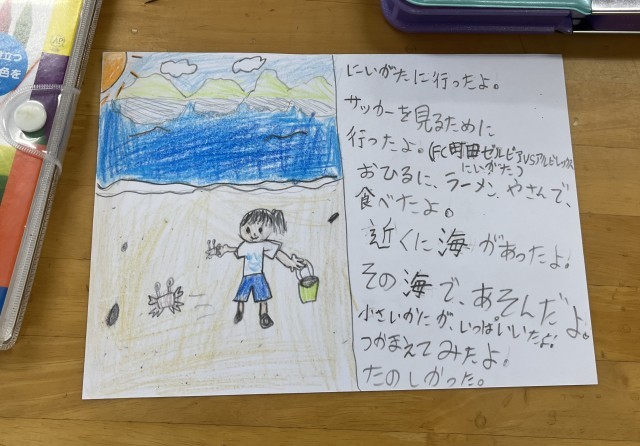 にいがたに行ったよ。
サッカーを見るために
行ったよ。(FC町田ゼルビアVSアルビレックス
にいがた)
おひるに、ラーメンやさんで、
食べたよ。
近くに海があったよ。
その海で、あそんだよ。
小さいかにが、いっぱいいたよ。
つかまえてみたよ。
たのしかった。
入門
立つ
色を